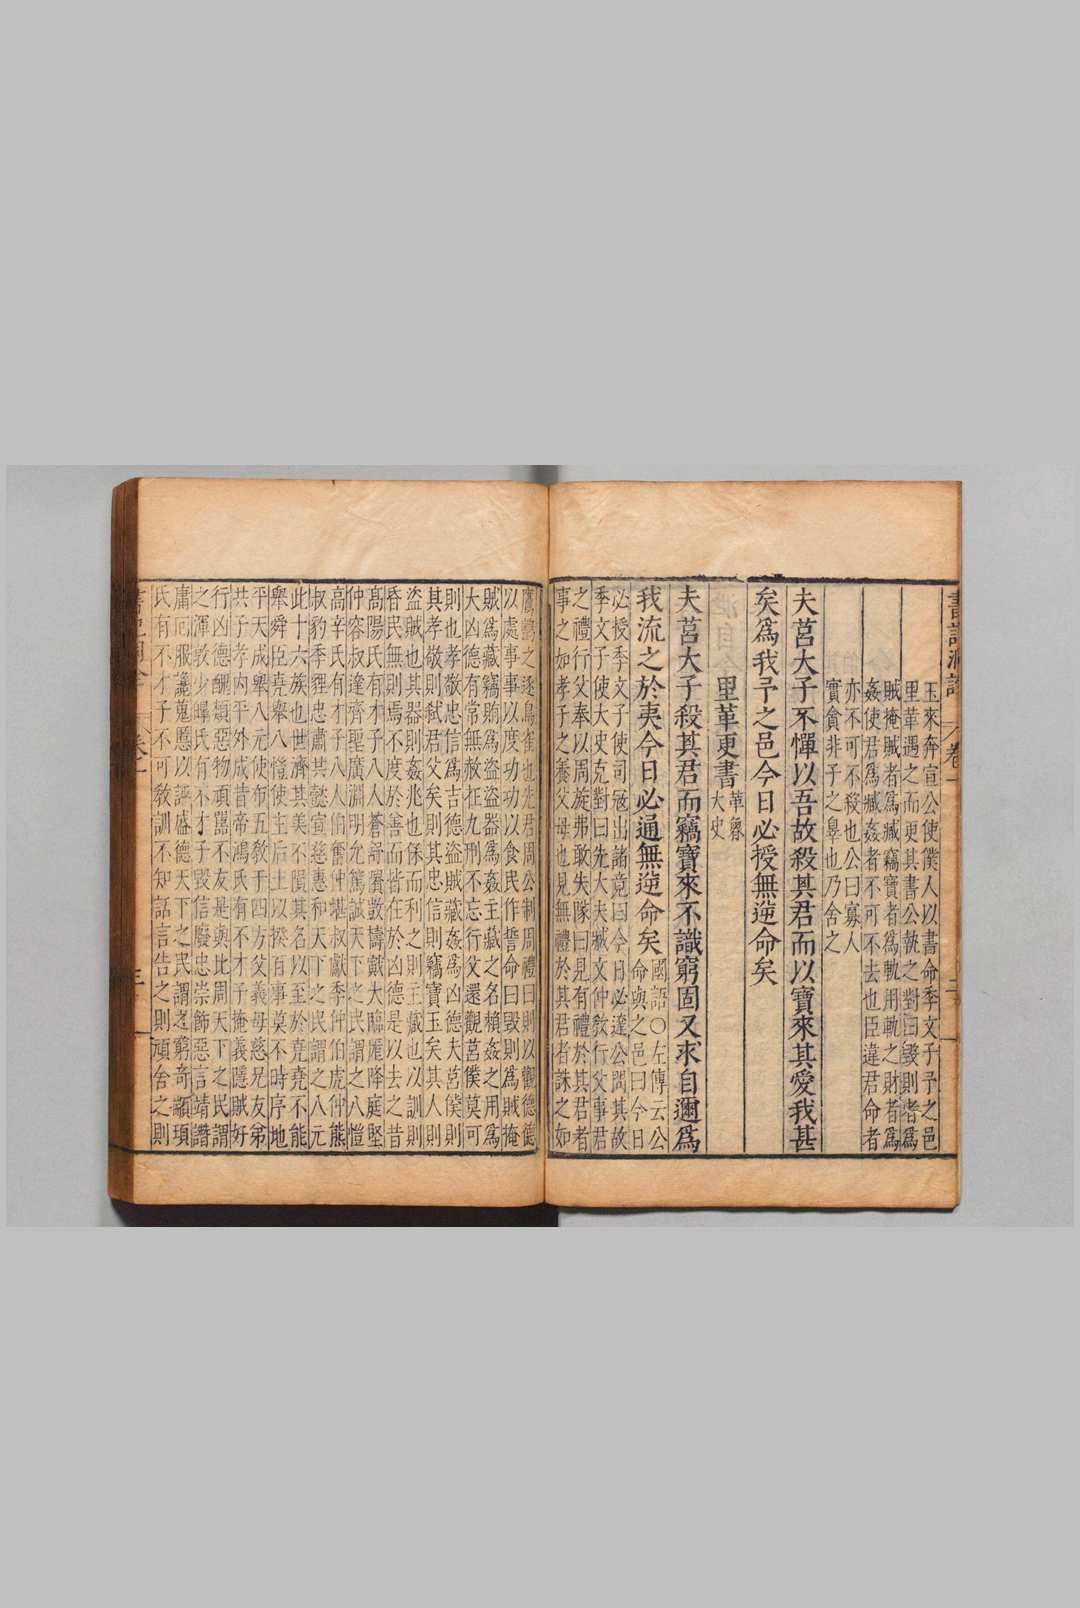 玉來奔宣公使僕人以書命季文子予之邑
里革遇之而更其書公執之對曰毀則者爲
賊掩賊者爲臧竊寶者爲軌用軌之財者爲
姦使君爲臧姦者不可不去也臣違君命者
亦不可不殺也公曰寡人
實貪非子之辠也乃舍之
夫莒大子不憚以吾故殺其君而以寶來其愛我甚
矣爲我予之邑今日必授無逆命矣
里革更書
革魯
大史
夫莒大子殺其君而竊寶來不識窮固又求自邇爲
我流之於夷今日必通無逆命矣
國語〇左傳云公
命與之邑曰今日
必授季文子使司寇出諸竟曰今日必達公問其故
季文子使大史克對曰先大夫臧文仲敎行父事君
之禮行父奉以周旋弗敢失隊曰見有禮於其君者
事之如孝子之養父母也見無禮於其君者誅之如
鷹鸇之逐鳥雀也先君周公制周禮曰則以觀德德
以處事事以度功功以食民作誓命曰毀則爲賊掩
賊爲藏竊賄爲盜盜器爲姦主藏之名賴姦之用爲
大凶德有常無赦在九刑不忘行父還觀莒僕莫可
則也孝敬忠信爲吉德盜賊藏姦爲凶德夫莒僕則
其孝敬則弑君父矣則其忠信則竊寶玉矣其人則
盜賊也其器則姦兆也保而利之則主藏也以訓則
昏民無則焉不度於善而皆在於凶德是以去之昔
高陽氏有才子八人蒼舒隤敳檮戭大臨尨降庭堅
仲容叔達齊聖廣淵明允篤誠天下之民謂之八愷
高辛氏有才子八人伯奮仲堪叔獻季仲伯虎仲熊
叔豹季貍忠肅共懿宣慈惠和天下之民謂之八元
此十六族也世濟其美不隕其名以至於堯堯不能
舉舜臣堯舉八愷使主后土以揆百事莫不時序地
平天成舉八元使布五敎于四方父義母慈兄友弟
共子孝內平外成昔帝鴻氏有不才子掩義隱賊好
行凶德醜類惡物頑嚚不友是與比周天下之民謂
之渾敦少皥氏有不才子毀信廢忠崇飾惡言靖譖
庸囘服讒蒐慝以誣盛德天下之民謂之窮奇顓頊
氏有不才子不可敎訓不知話言告之則頑舍之則